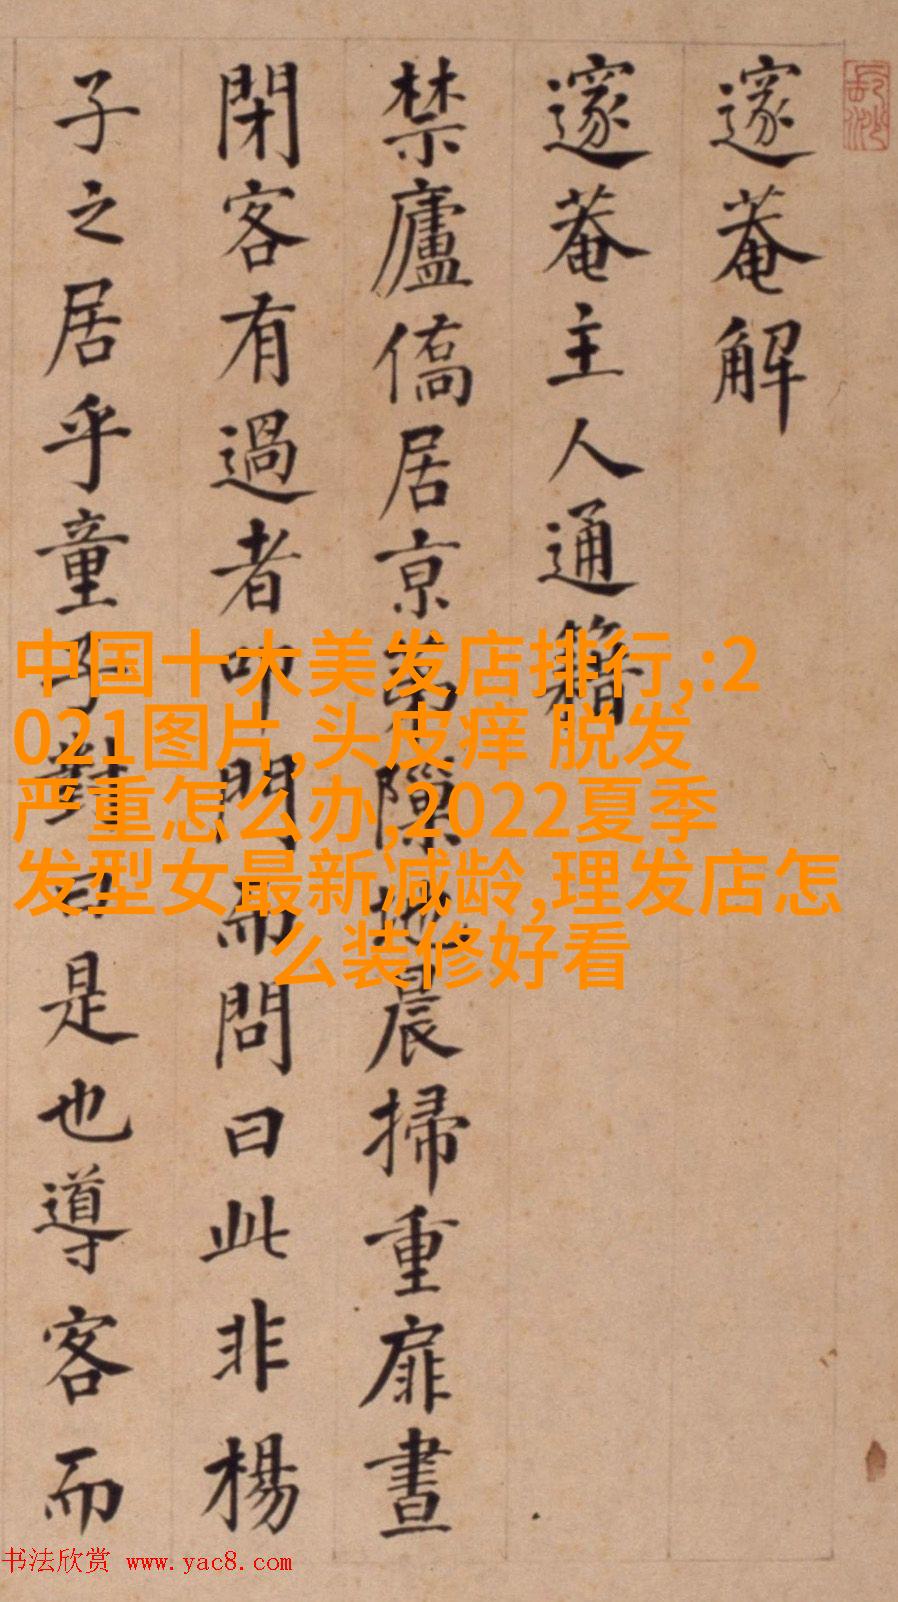 邃菴解
邃菴主人通籍
禁廬僑居京第隙地晨掃重扉晝
閉客有過者叩門而問曰此非楊
子之居乎童子對曰是也導客而
中国十大美发店排行,:2
021图片,头皮痒 脱发
严重怎么办,2022夏季
发型女最新减龄,理发店怎
么装修好看
书法欣赏 www.yac8.com